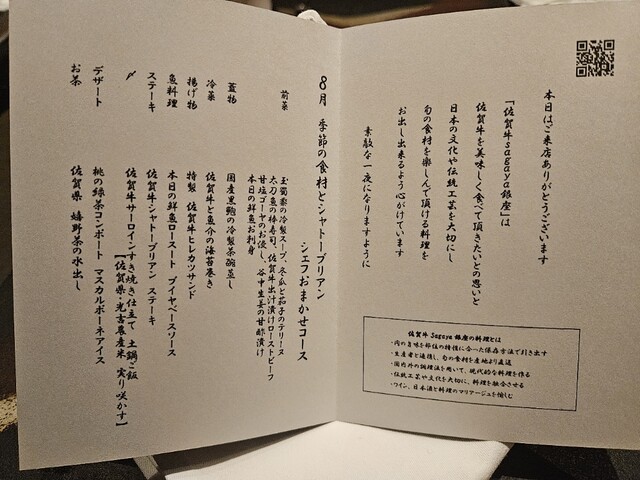 本日はご来店ありがとうございます
「佐賀牛sagaya銀座」は
佐賀牛を美味しく食べて頂きたいとの思いと
日本の文化や伝統工芸を大切にし
旬の食材を楽しんで頂ける料理を
お出し出来るよう心がけています
素敵な一夜になりますように
佐賀牛 Sagaya 銀座の料理とは
・肉の旨味を部位の特徴に合った保存方法で引き出す
・生産者と連携し、旬の食材を産地より直送
・国内外の調理法を用いて、現代的な料理を作る
・伝統工芸や文化を大切に、料理を融合させる
・ワイン、日本酒と料理のマリアージュを愉しむ
8月 季節の食材とシャトーブリアン
シェフおまかせコース
前菜 玉蜀黍の冷製スープ、冬瓜と茄子のテリーヌ
太刀魚の棒寿司、佐賀牛出汁漬けローストビーフ
甘塩ゴーヤのお浸し、谷中生姜の甘酢漬け
本日の鮮魚お刺身
蓋物 国産黒鮑の冷製茶碗蒸し
冷菜 佐賀牛と魚介の海苔巻き
揚げ物 特製 佐賀牛ヒレカツサンド
魚料理 本日の鮮魚ロースト ブイヤベースソース
ステーキ 佐賀牛シャトーブリアン ステーキ
〆 佐賀牛サーロインすき焼き仕立て 土鍋ご飯
【佐賀県・光吉農産米 実り咲かす】
デザート 桃の緑茶コンポート マスカルポーネアイス
お茶 佐賀県 嬉野茶の水出し